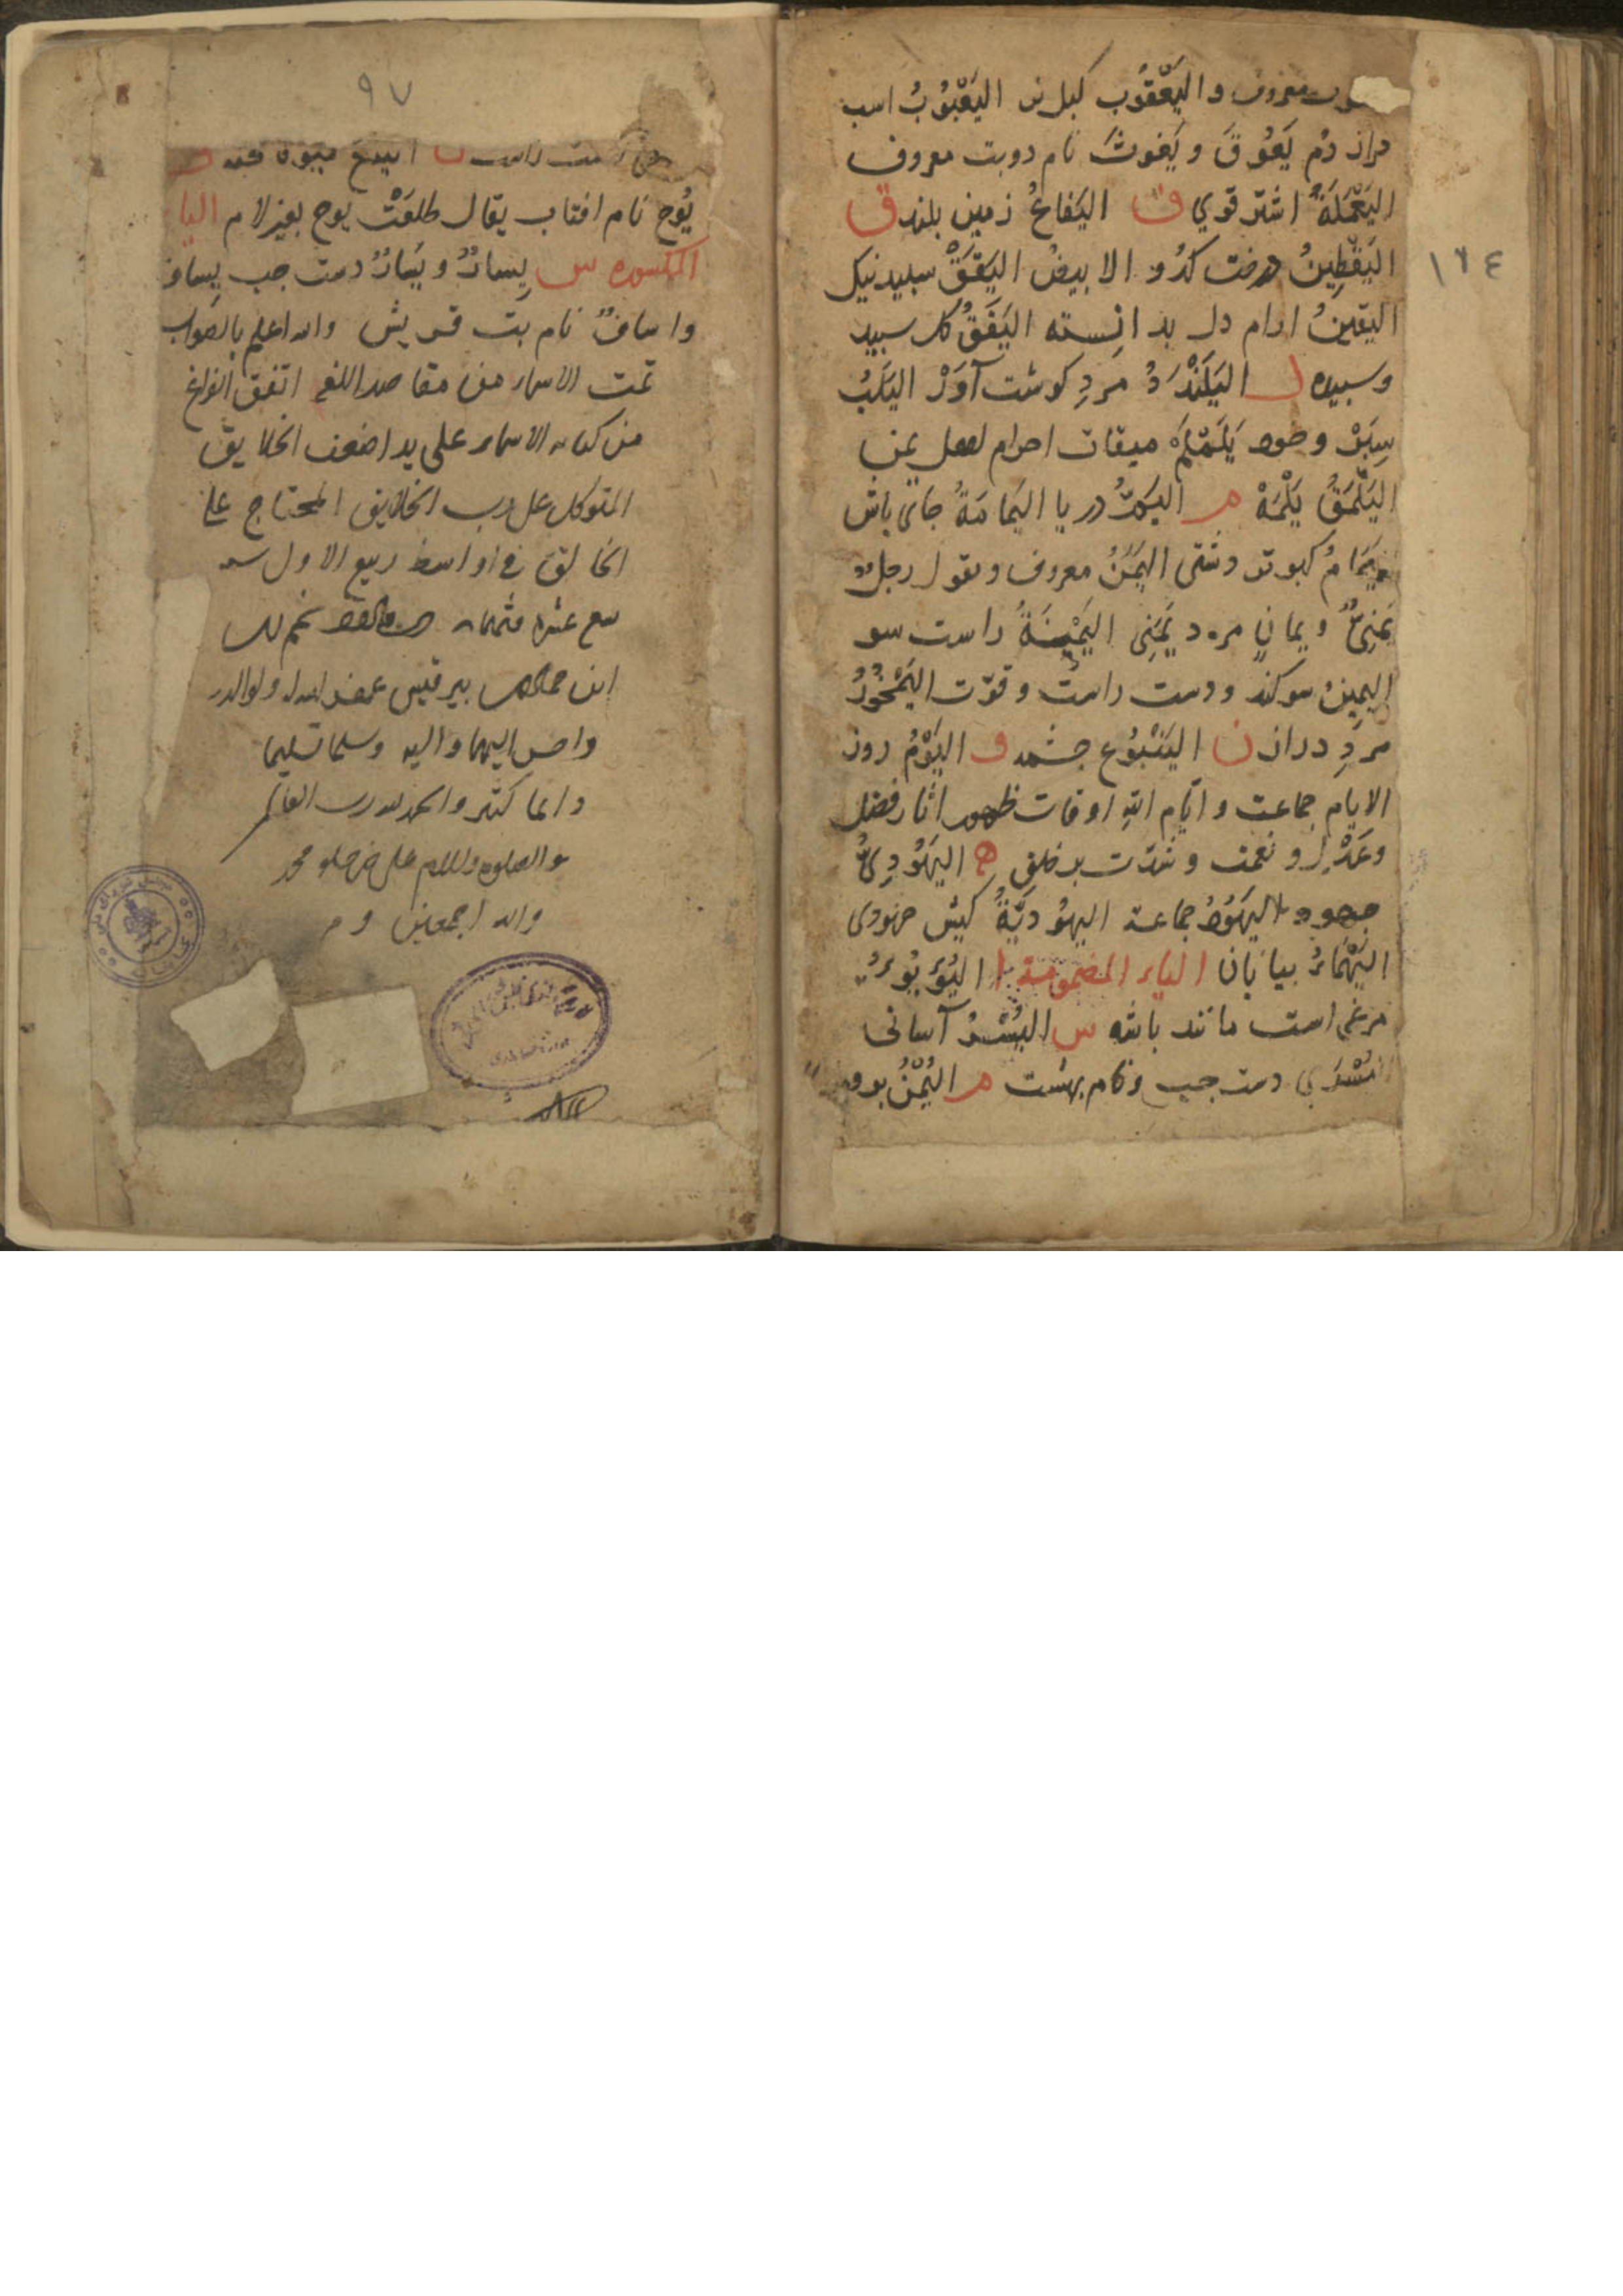 معروف و اليَعْقُوب كبك نر اليَعْبُوبُ اسب
دراز دُم يَعُوقَ و يَغوثَ نام دو بت معروف
اليَعْمَلَةُ اشتر قوي ف اليَفاعُ زمين بلند ق
١٢٤
اليَقْطِينُ درخت كدُو الابيضُ اليَقَقُ سبيد نيك
اليقينُ ارام دل بدانسته اليَقَقُ كل سبيد
وسبيده ل اليَلَنْدَدُ مردِ كوشت آوَرْ اليَلَبُ
سِبَرْ و خود يَلَمْلَمْ ميقات احرام اهل يمن
اليَلْمَقُ يَلْمَهْ م اليَمُّ دريا اليَمامَةُ جاى باش
يَمَامُ كبوتر دشتى اليَمَنُ معروف و تقول رجل
يَمَنِىٌّ و يمانٍ مرد يَمَنِى اليَمْنَةُ راست سو
اليمينُ سوكند و دست راست و قوّت اليَمْخُودُ
مردِ دراز ن اليَنْبُوع جشمه و اليَوْمُ روز
الايام جماعت و ايّام اللهِ اوقات ظهور اثار فضل
وعَدْل و نعمت و شدّت بر خلق ه اليَهُودِىُّ
جهود اليَهُودُ جماعة اليهُوديّةُ كيش جهودى
اليَهْمَاءُ بيابان الياء المضمومة ا اليُؤيُؤ
مرغى است مانند باشه س اليُسْرُ آسانى
دست جب و نام بهشت م اليُمْنُ
٩٧
دست راست ن الينع ميوه
يُوح نام افتاب يقال طلعَتْ يوح بغير لام اليا
المكسوره س يِسارٌ و يَسارٌ دست جب يِساف
و اساف نام بت قريش والله اعلم بالصواب
تمت الاسماء من مقاصد اللغه اتفق الفراغ
من كتابه الاسماء على يد اضعف الخلايق
المتوكل على رب الخلايق المحتاج على
الخالق فى اواسط ربيع الاول سنه
سبع عشره و ثمانمائه
ابن بير قيس غفر الله له ولوالديه
واحسن اليهما واليه وسلم تسليما
دائما كثيرا والحمد لله رب العالمين
والصلوة والسلام على خير خلقه محمد
واله اجمعين